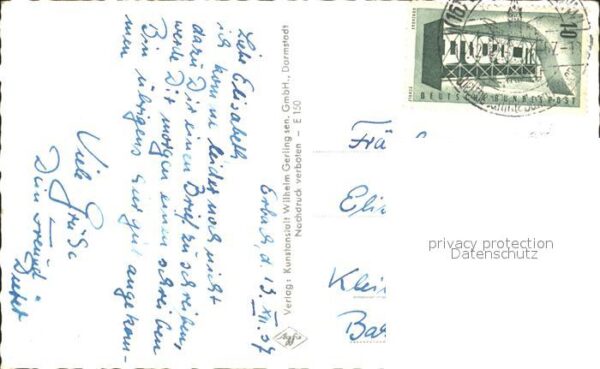 Erbach, d. 13. VII. 57
Liebe Elisabeth
ich komme leider noch nicht
dazu Dir einen Brief zu schreiben,
werde Dir morgen einen schreiben
Bin übrigens hier gut angekom-
men
Viele Grüße
Dein Freund
Dieter
Verlag: Kunstanstalt Wilhelm Gerling sen. GmbH., Darmstadt
Nachdruck verboten – E 150
Agfa
EUROPA
10
DEUTSCHE BUNDESPOST
Frä
Elis
Klei
Ba
privacy protection
Datenschutz